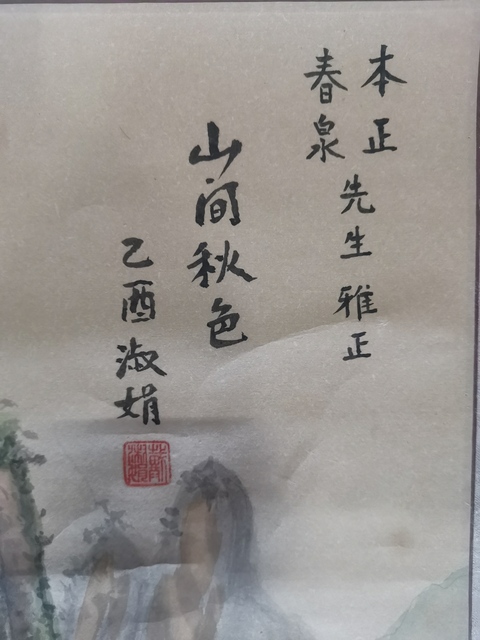 本正
春泉
先生雅正
山间秋色
乙酉淑娟